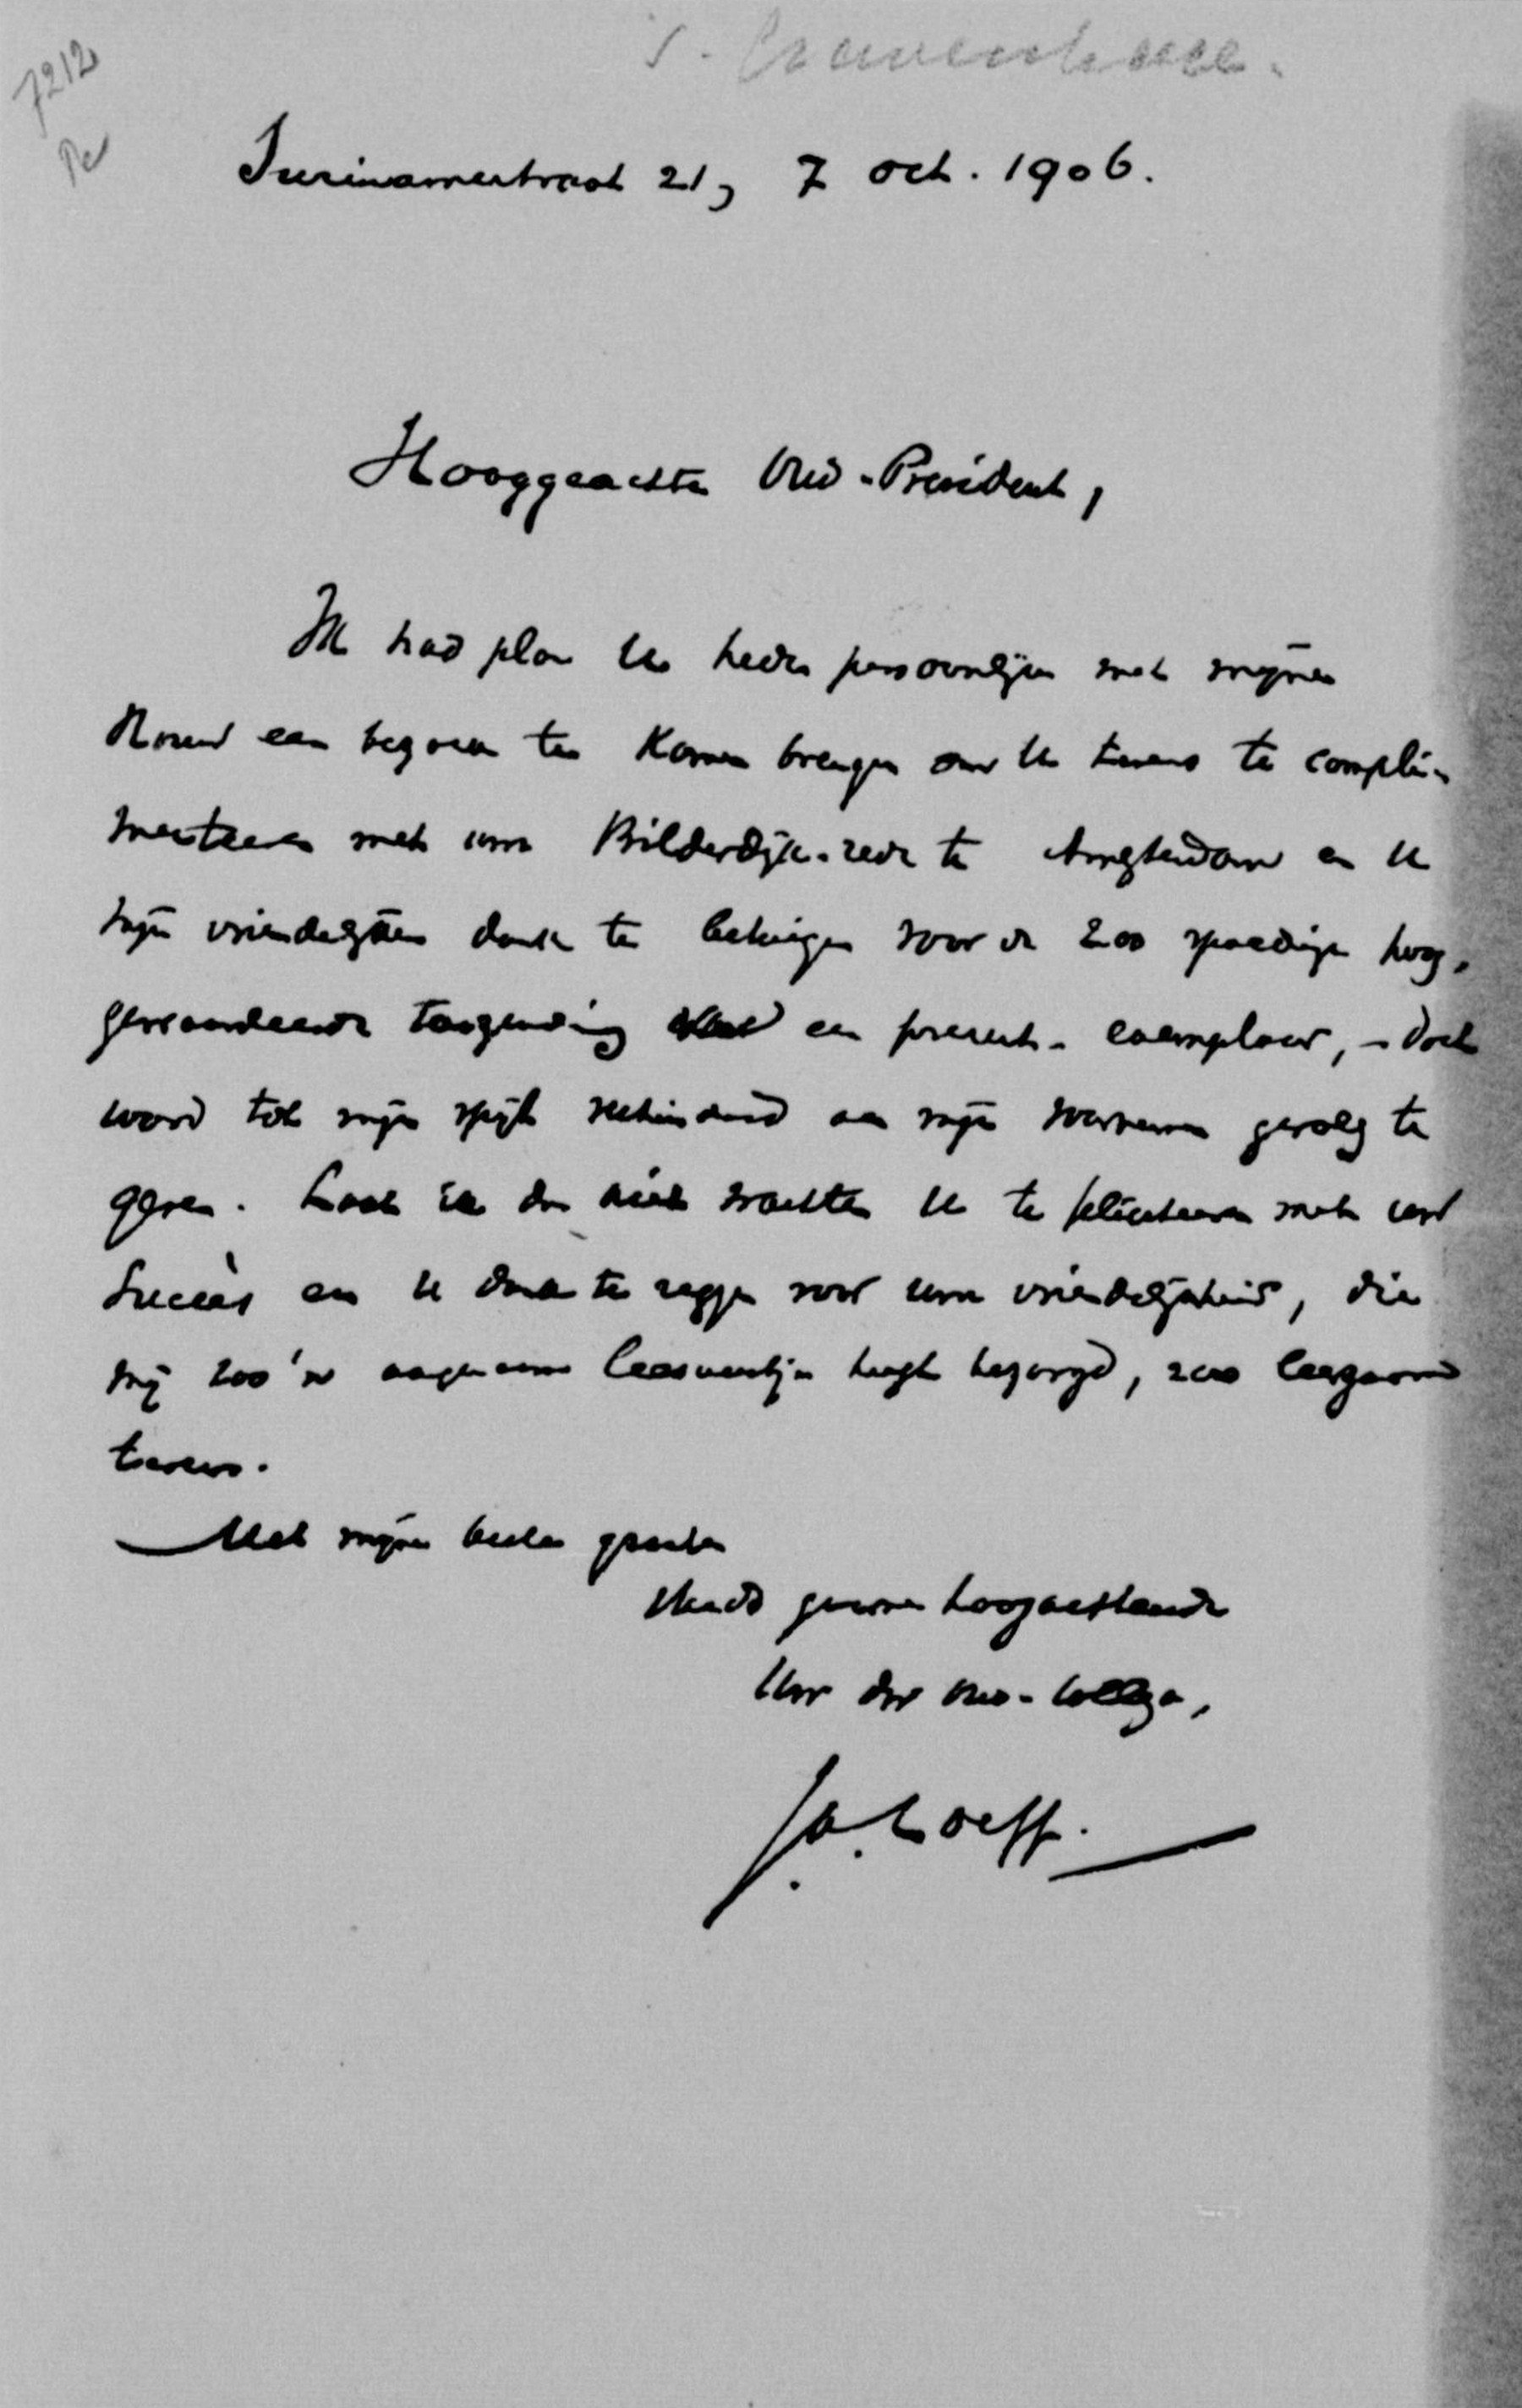 7212
s. Gravenhage.
Surinamestraat 21, 7 Oct. 1906.
Hooggeachte Oud-President,
Ik had plan U heden persoonlijk met mijne
vrouw een bezoek te komen brengen om U tevens te compli-
menteeren met uwe Bilderdijk-rede te Amsterdam en U
mijn vriendelijken dank te betuigen voor de zoo spoedige hoog-
gewaardeerde toezending van een present-exemplaar, - doch
word tot mijn spijt verhinderd aan mijn voornemen gevolg te
geven. Laat ik dan niet wachten U te feliciteeren met uw
succès en U dank te zeggen voor uwe vriendelijkheid, die
mij zoo'n aangenaam leesuurtje heeft bezorgd, zoo leerzaam
tevens.
Met mijne beste groeten
steeds gaarne hoogachtend
Uw dw oud-collega,
J.A. Loeff.